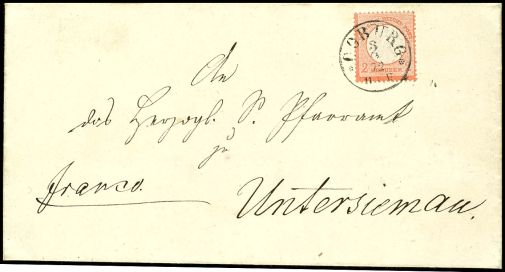 COBURG
72
An
das Herzogl. S. Pfarramt
zu
franco.
Untersiemau.